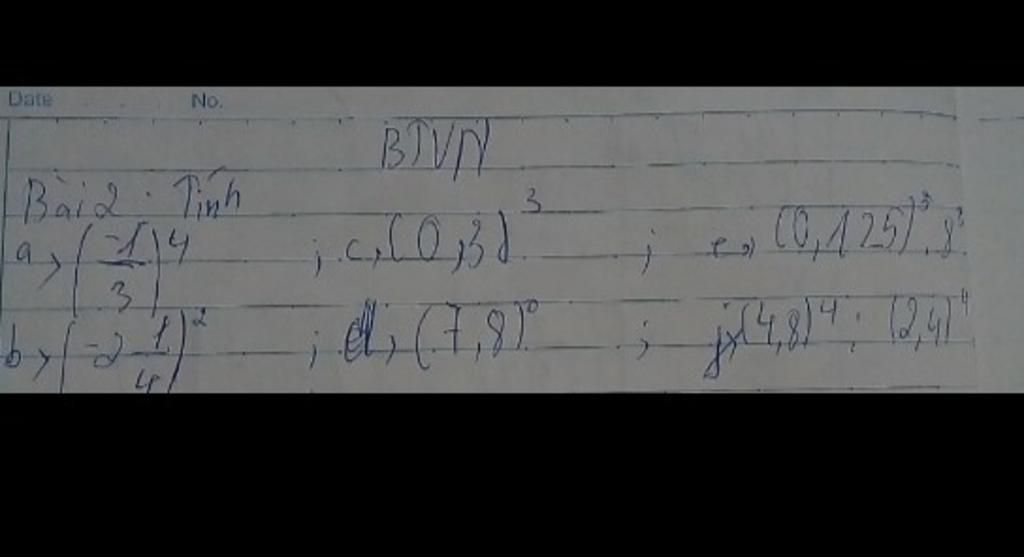 Date No.
BTVN
Bài 2 : Tính
a> (-1/3)^4 ; c, (0,3)^3 ; e, (0,125)^3 . 8^3
b> (-2 1/4)^2 ; d, (7,8)^0 ; (4,8)^4 : (2,4)^4